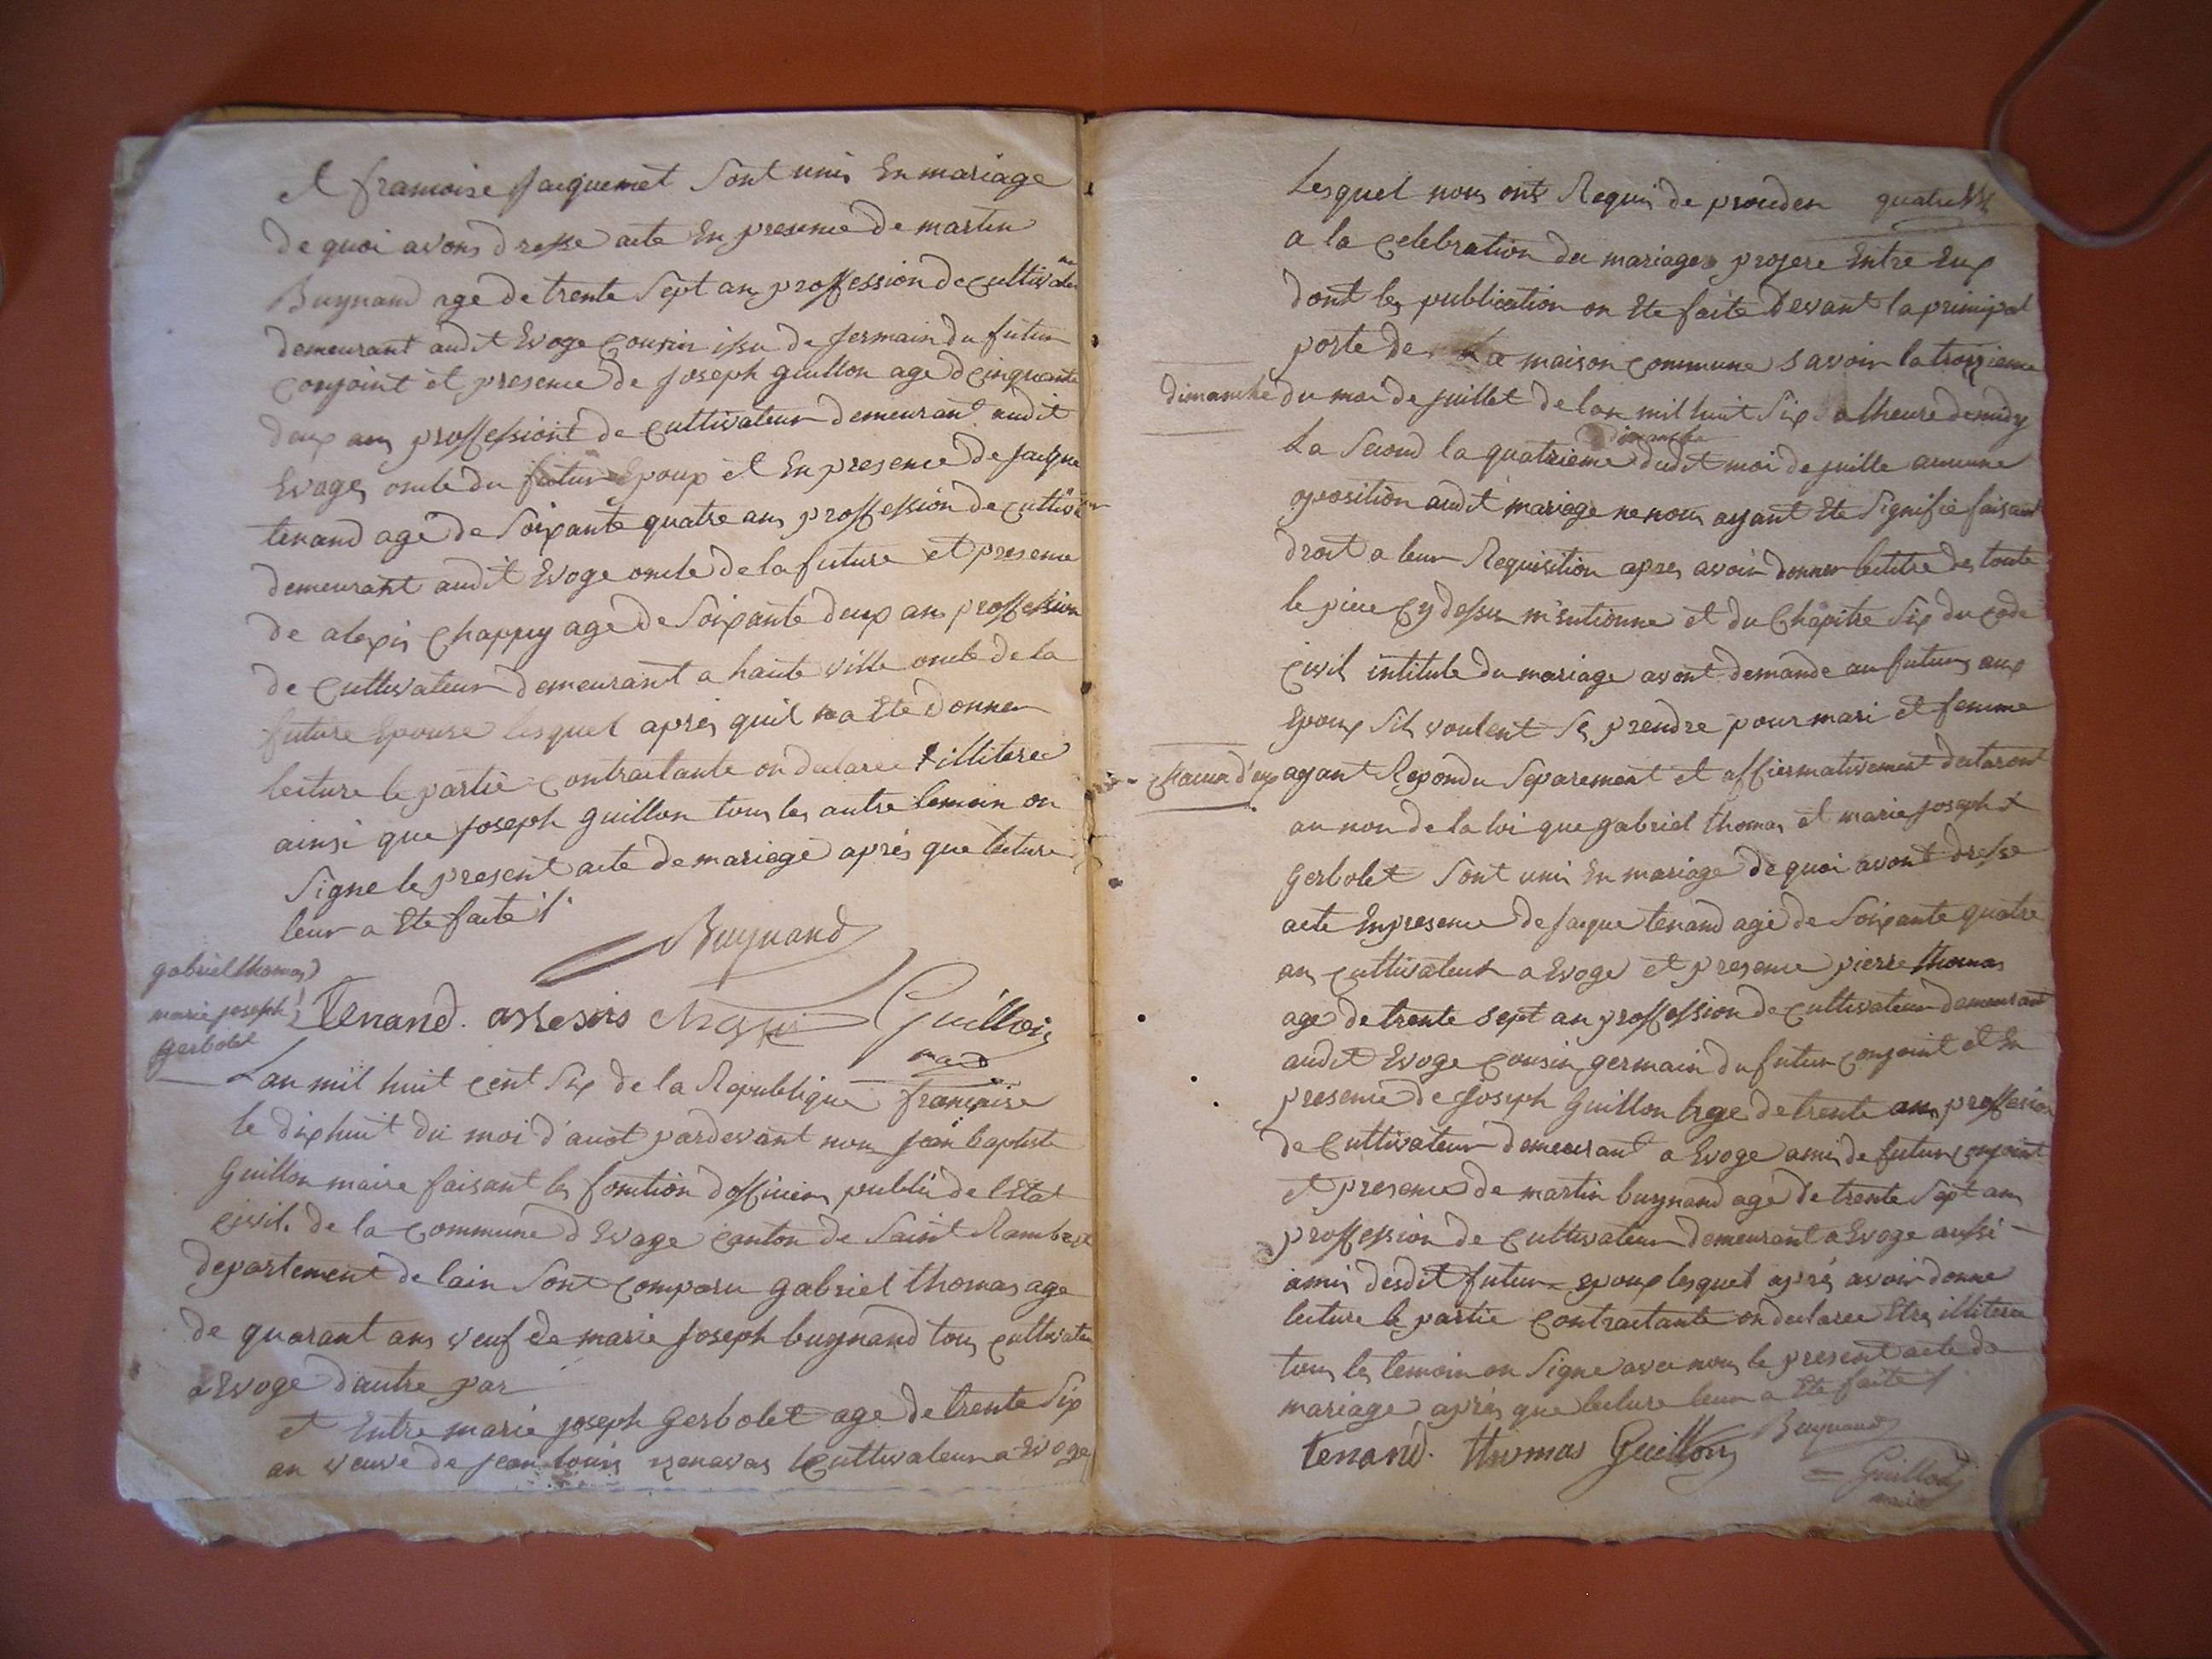 et francoise Jaiquemet Sont unis En mariage
de quoi avons dresse acte En presence de martin
Buynand age de trente Sept an proffession de cultivateur
demeurant audit Evoge cousin issu de Jermain du futur
conjoint et presence de Joseph guillon age de cinquante
deux ans proffession de cultivateur demeurant audit
Evoges oncle du futur Epoux et En presence de Jaique
tenand age de Soixante quatre ans proffession de cultivateur
demeurant audit Evoge oncle de la future et presence
de alexis Chappuy age de Soixante deux ans proffession
de cultivateur demeurant a haute ville oncle de la
future Epouse lesquel apres quil na Ete donner
lecture le partie contractante on declaree illiteree
ainsi que Joseph guillon tous les autre temoin on
Signe le present acte de mariage apres que lecture
leur a Ete faite
Buynand
gabriel thomas
marie joseph
gerbolet
Tenand. assesois Guillon
Lan mil huit cent Six de la Republique francaise
le dix huit du moi d'auot pardevant nous jean baptiste
Guillon maire faisant les fonction dofficier public de l'Etat
civil de la commune d Evoge canton de Saint Rambert
departement de lain Sont comparu gabriel thomas age
de quarant ans veuf de marie Joseph buynand tous cultivateur
a Evoge dautre par
et Entre marie joseph Gerbolet age de trente Six
an veuve de jean louis cultivateur a Evoge
Lesquel nous ont Requis de proceder quatre
a la celebration du mariage projere Entre Eux
dont les publication on Ete faite Devant la principal
porte de maison commune Savoir la troizieme
dimanche du moi de juillet de lan mil huit Six a lheure de midy
dimanche
La Second la quatrieme dudit moi de juille aucune
oposition audit mariage ne nous ayant Ete Signifie faisant
droit a leur Requisition apres avoir donner lectitre des toute
le piece cy dessus mentionne et du Chapitre Six du code
civil intitule du mariage avont demande au futurs aux
Epoux Sils voulent Se prendre pour mari et femme
chacun d'eux ayant Repondu Separement et affiermativement declaront
au non de la loi que gabriel thomas et marie joseph
Gerbolet Sont unis En mariage de quoi avont dresse
acte En presence de jacque tenand age de Soixante quatre
an cultivateur a Evoge et presence pierre thomas
age de trente sept an proffession de cultivateur demeurant
audit Evoge cousin germain du futur conjoint et En
presence de Joseph Guillon age de trente ans proffession
de cultivateur demeurant a Evoge amis de futur conjoint
et presence de martin buynand age de trente Sept ans
proffession de cultivateur demeurant a Evoge aussi
amis desdit futur epoux lesquel apres avoir donne
lecture le partie contractante on declaree Etre illiteree
tous les temoin on Signe avec nous le present acte de
mariage apres que lecture leur a Ete faite
Tenand. thomas Guillon Buynand
Guillon
maire